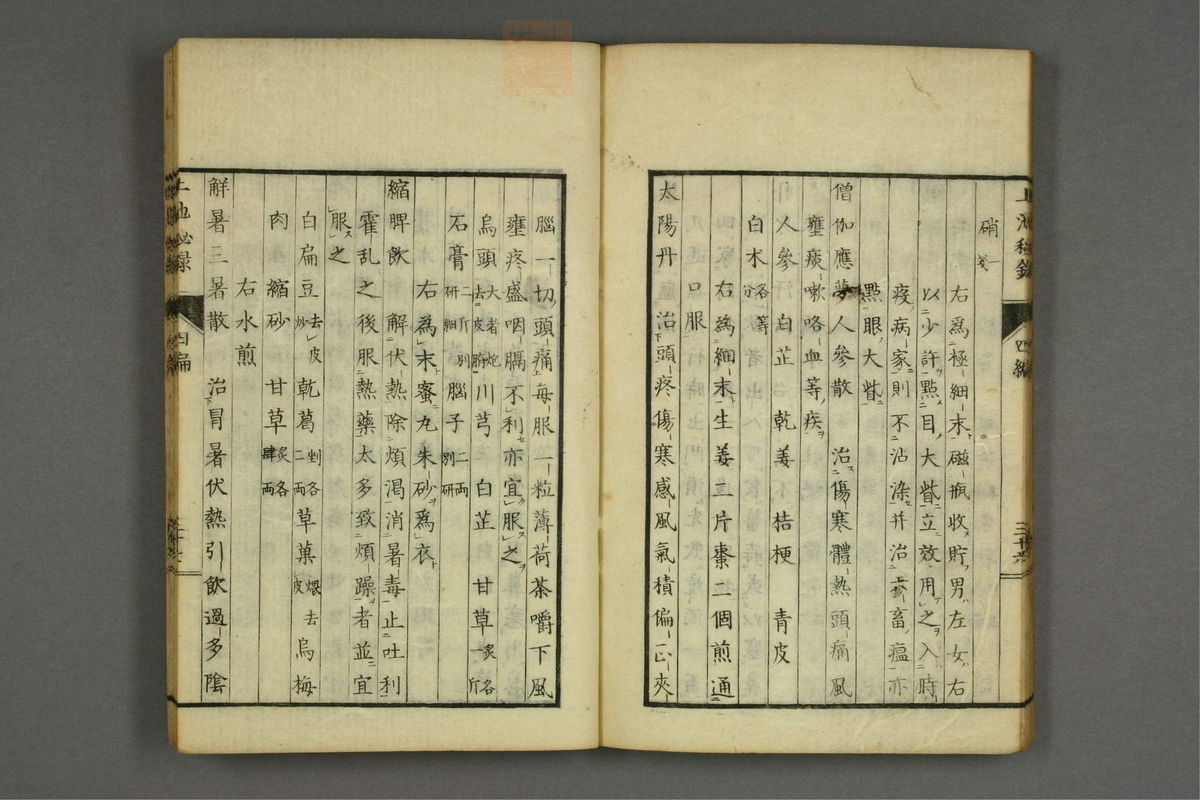 硝 一戔
右爲極細末磁瓶收貯男左女右
以少許點目大眥立效用之入時
疫病家則不沾染并治六畜瘟亦
點眼大眥
僧伽應夢人參散 治傷寒體熱頭痛風
壅痰嗽咯血等疾
人參 白芷 乾姜 桔梗 青皮
白木各等分
右爲細末生姜二片棗二個煎通
口服
太陽丹 治頭疼傷寒感風氣積偏正夾
腦一切頭痛每服一粒薄荷茶嚼下風
壅疼盛咽膈不利亦宜服之
烏頭大者炮去皮臍 川芎 白芷 甘草各一斤炙
石膏二斤別研細 腦子二兩別研
右爲末蜜丸朱砂爲衣
縮脾飲 解伏熱除煩渴消暑毒止吐利
霍乱之後服熱藥太多致煩躁者並宜
服之
白扁豆去皮炒 乾葛剉各二兩 草菓煨去皮 烏梅
肉 縮砂 甘草炙各肆兩
右水煎
解暑三暑散 治冒暑伏熱引飲過多陰
上池秘録 四編